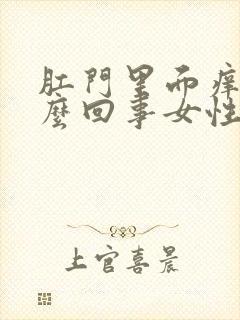 肛門里面痒
麼回事女性
上官喜晨